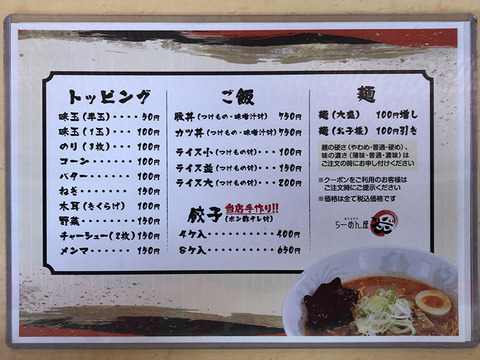 トッピング
味玉(半玉)・・・・・ 50円
味玉(1玉)・・・・ 100円
のり(3枚)・・・・ 100円
コーン・・・・・・・ 100円
バター・・・・・・・ 100円
ねぎ・・・・・・・・ 150円
木耳(きくらげ) 100円
野菜・・・・・・・・ 150円
チャーシュー(2枚) 150円
メンマ・・・・・・・ 150円
ご飯
豚丼(つけもの・味噌汁付) 750円
カツ丼(つけもの・味噌汁付) 750円
ライス小(つけもの付)・・・ 100円
ライス並(つけもの付)・・・ 150円
ライス大(つけもの付)・・・ 200円
餃子 当店手作り!!
(ポン酢タレ付)
4ケ入・・・・・・・・・ 400円
8ケ入・・・・・・・・・ 650円
麺
麺(大盛) 100円増し
麺(お子様) 100円引き
麺の硬さ(やわめ・普通・硬め)、
味の濃さ(薄味・普通・濃味)は
ご注文の時にお申し付けください
※クーポンをご利用のお客様は
ご注文時にご提示ください
※価格は全て税込価格です
らーめん屋